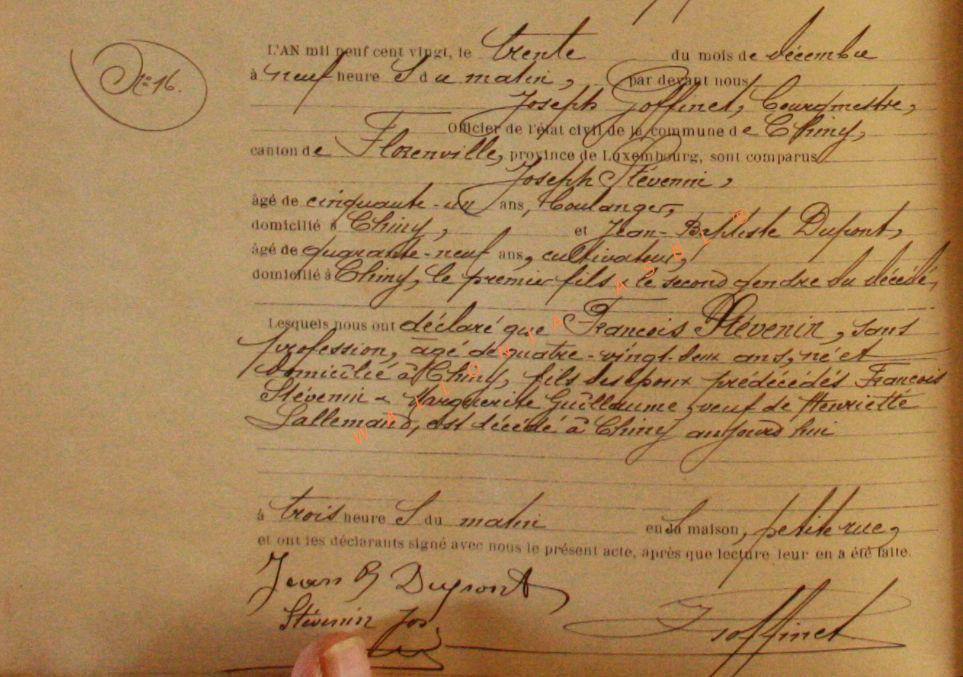 N° 16.
L'AN mil neuf cent vingt, le trente du mois de décembre
à neuf heure S du matin, par devant nous
Joseph Goffinet, Bourgmestre,
Officier de l'état civil de la commune de Chiny,
canton de Florenville, province de Luxembourg, sont comparus
Joseph Stévenin,
âgé de cinquante-un ans, boulanger,
domicilié à Chiny, et Jean-Baptiste Dupont,
âgé de quarante-neuf ans, cultivateur,
domicilié à Chiny, le premier fils & le second gendre du décédé,
Lesquels nous ont déclaré que François Stévenin, sans
profession, âgé de quatre-vingt-deux ans, né et
domicilié à Chiny, fils des époux prédécédés François
Stévenin & Marguerite Guillaume, veuf de Henriette
Lallemand, est décédé à Chiny aujourd'hui
à trois heure S du matin en sa maison, petite rue,
et ont les déclarants signé avec nous le présent acte, après que lecture leur en a été faite.
Jean B Dupont
Stévenin Jos
J Goffinet